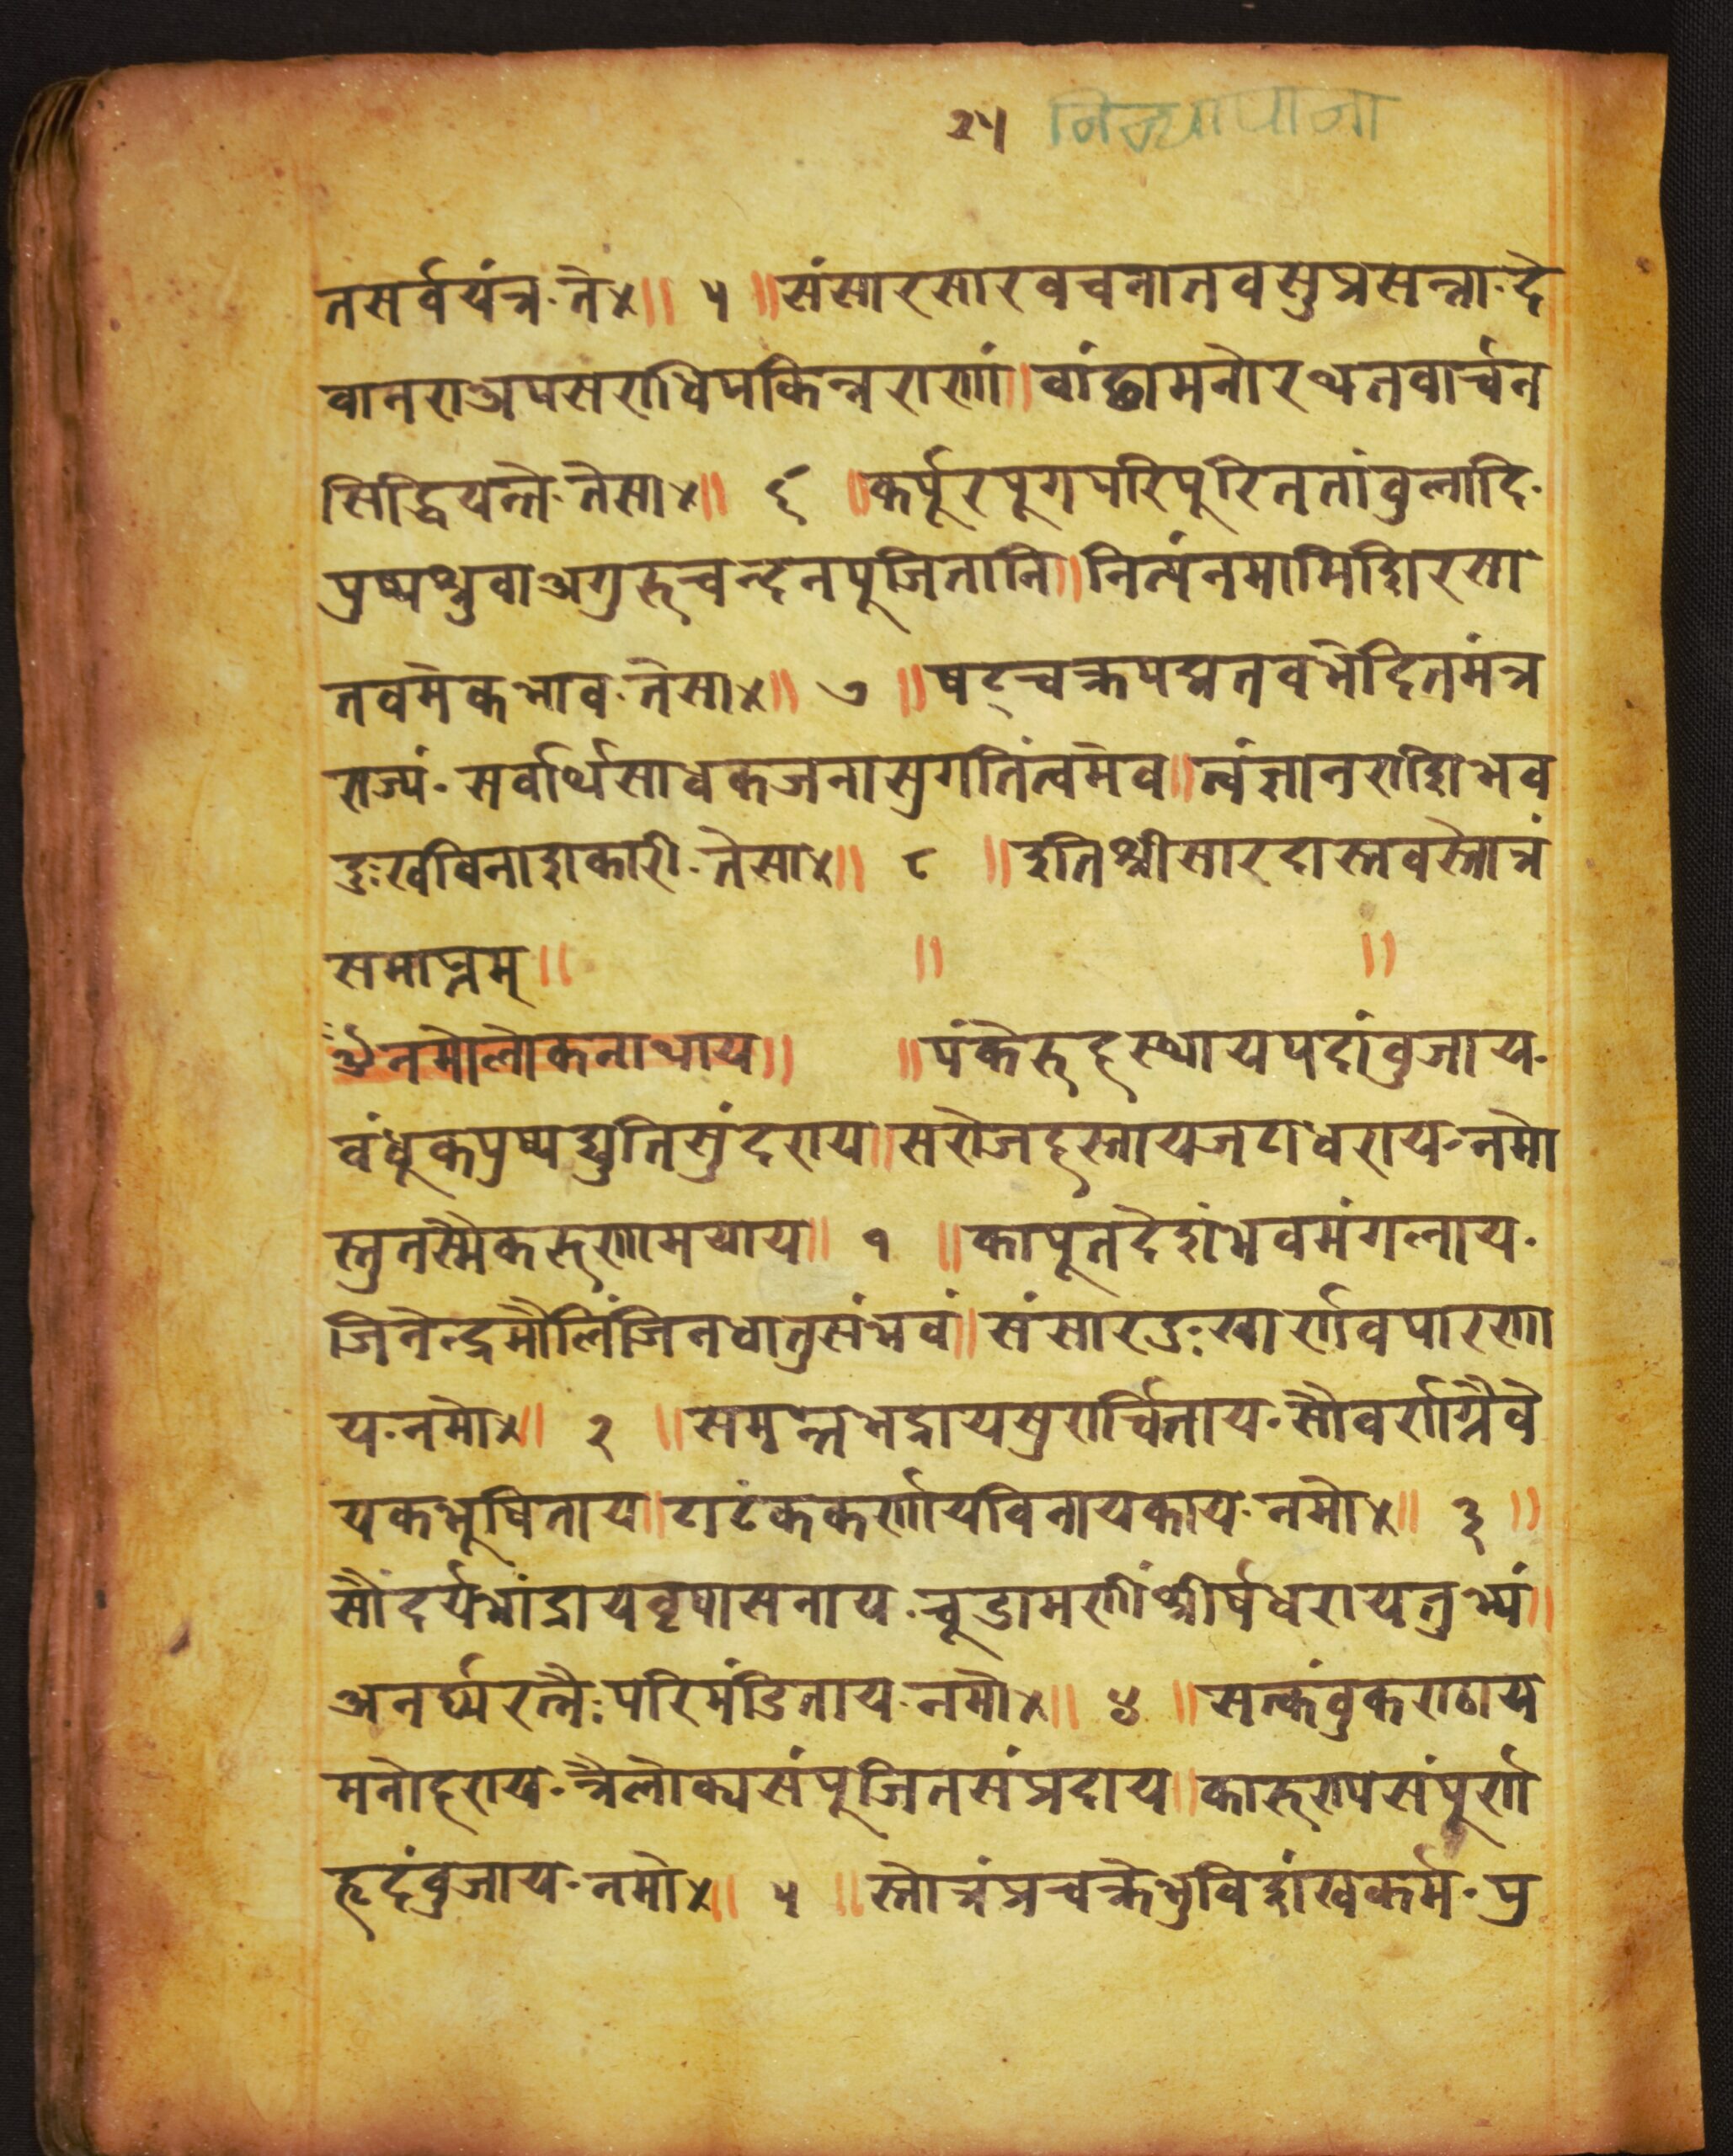 २५
तसर्वयंत्र·ते४॥ ५ ॥संसारसारवचनातवसुप्रसन्ना·दे
वानराअपसराधिपकिन्नराणां॥वांछामनोरथतवार्चन
सिद्धियन्ते·तेसा४॥ ६ ॥कर्पूरपूगपरिपुरिततांवुलादि·
पुष्पश्रुवाअगुरुचन्दनपूजितानि॥नित्यंनमामिशिरसा
तवमेकभाव·तेसा४॥ ७ ॥षट्चक्रपद्मतवभेदितमंत्र
राज्यं·सर्वार्थसाधकजनासुगतिंत्वमेव॥त्वंज्ञानराशिभव
दुःखविनाशकारी·तेसा४॥ ८ ॥इतिश्रीसारदास्तवस्तोत्रं
समाप्तम्॥ ॥ ॥
ॐनमोलोकनाथाय॥ ॥पंकेरुहस्थायपदांवुजाय·
वंधूकपुष्पद्युतिसुंदराय॥सरोजहस्तायजटाधराय·नमो
स्तुतस्मैकरुणामयाय॥ १ ॥कापूतदेशंभवमंगलाय·
जिनेन्द्रमौलिंजिनधातुसंभवं॥संसारदुःखार्णवपारणा
य·नमो४॥ २ ॥समन्तभद्रायसुरार्चिताय·सौवर्णग्रैवे
यकभूषिताय॥टाटंककर्णायविनायकाय·नमो४॥ ३ ॥
सौंदर्यभांद्रायवृषासनाय·चूडामणींश्रीर्षधरायतुभ्यं॥
अनर्घ्यरत्नैःपरिमंडिताय·नमो४॥ ४ ॥सत्कंवुकराठाय
मनोहराय·त्रैलोक्यसंपूजितसंप्रदाय॥कारुरापसंपुर्ण
हृदंवुजाय·नमो४॥ ५ ॥स्तोत्रंप्रचक्रेभुविशंखकर्म·पु